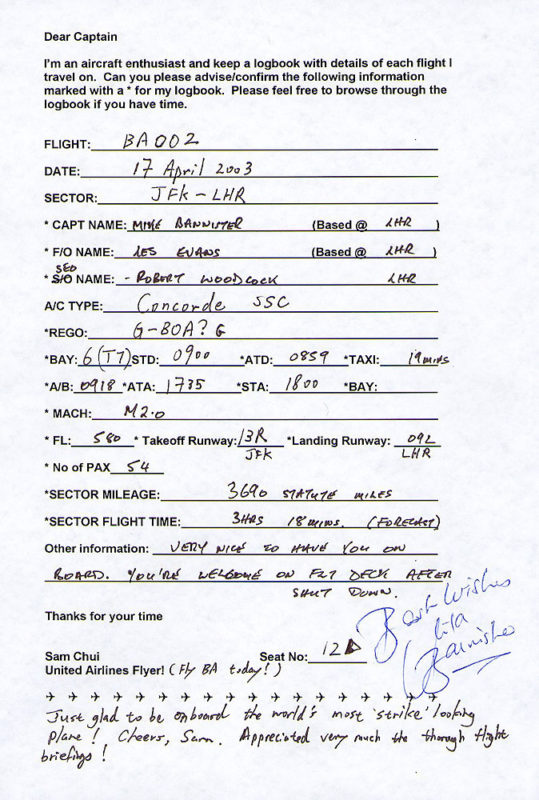 Dear Captain
I'm an aircraft enthusiast and keep a logbook with details of each flight I
travel on. Can you please advise/confirm the following information
marked with a * for my logbook. Please feel free to browse through the
logbook if you have time.
FLIGHT: BA002
DATE: 17 April 2003
SECTOR: JFK - LHR
* CAPT NAME: MIKE BANNISTER (Based @ LHR )
* F/O NAME: LES EVANS (Based @ LHR )
SEO
* S/O NAME: - ROBERT WOODCOCK LHR
A/C TYPE: Concorde SSC
*REGO: G-BOA? G
*BAY: 6 (T7) STD: 0900 *ATD: 0859 *TAXI: 19 mins
*A/B: 0918 *ATA: 1735 *STA: 1800 *BAY:
* MACH: M2.0
* FL: 580 * Takeoff Runway: 13R *Landing Runway: 09L
JFK LHR
* No of PAX 54
*SECTOR MILEAGE: 3690 STATUTE MILES
*SECTOR FLIGHT TIME: 3HRS 18 MINS. (FORECAST)
Other information: VERY NICE TO HAVE YOU ON
BOARD. YOU'RE WELCOME ON FLT DECK AFTER
SHUT DOWN.
Thanks for your time
Best Wishes
Bannister
Sam Chui Seat No: 12A
United Airlines Flyer! (Fly BA today!)
Just glad to be onboard the world's most 'strike' looking
plane! Cheers, Sam. Appreciated very much the thorough flight
briefings!